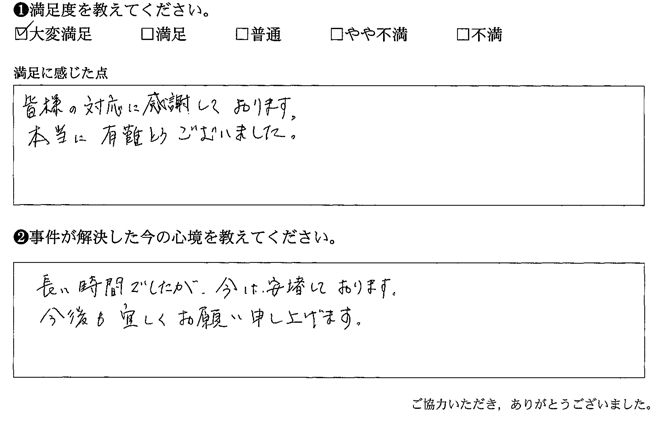 ❶満足度を教えてください。
☑大変満足 □満足 □普通 □やや不満 □不満
満足に感じた点
皆様の対応に感謝して おります。
本当に 有難とうございました。
❷事件が解決した今の心境を教えてください。
長い時間でしたが、今は、安堵して おります。
今後も 宜しく お願い 申し上げます。
ご協力いただき，ありがとうございました。